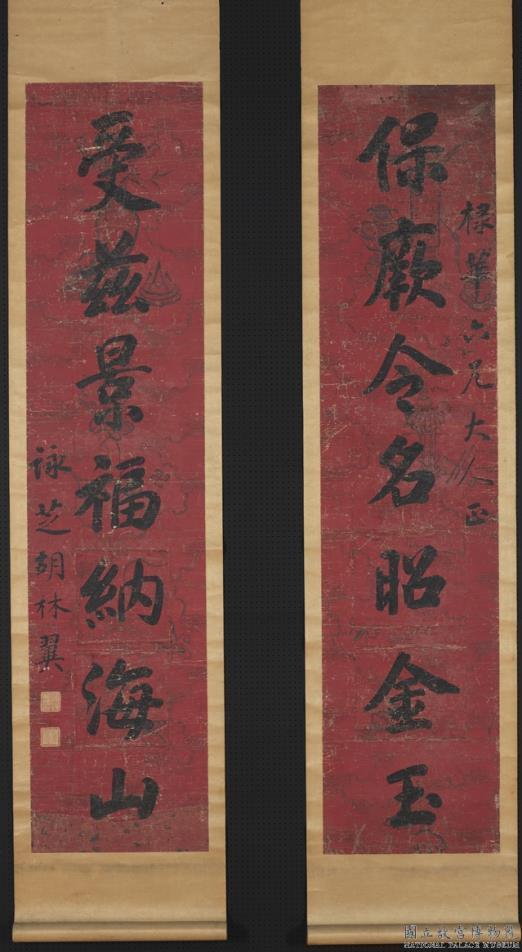 保厥令名昭金玉
棣華六兄大人正
受茲景福納海山
詠芝胡林翼
國立故宮博物院
NATIONAL PALACE MUSEUM